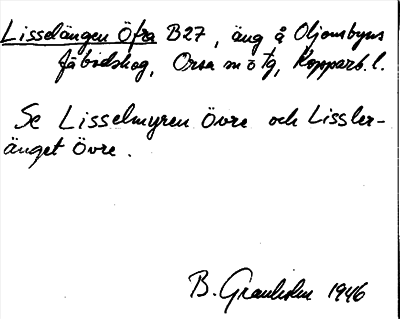 Lisselängen Öfra B27, äng å Oljonsbyns
fäbodskog, Orsa sn o tg, Kopparb. l.
Se Lisselmyren Övre och Lissler-
änget Övre.
B. Granholm 1946